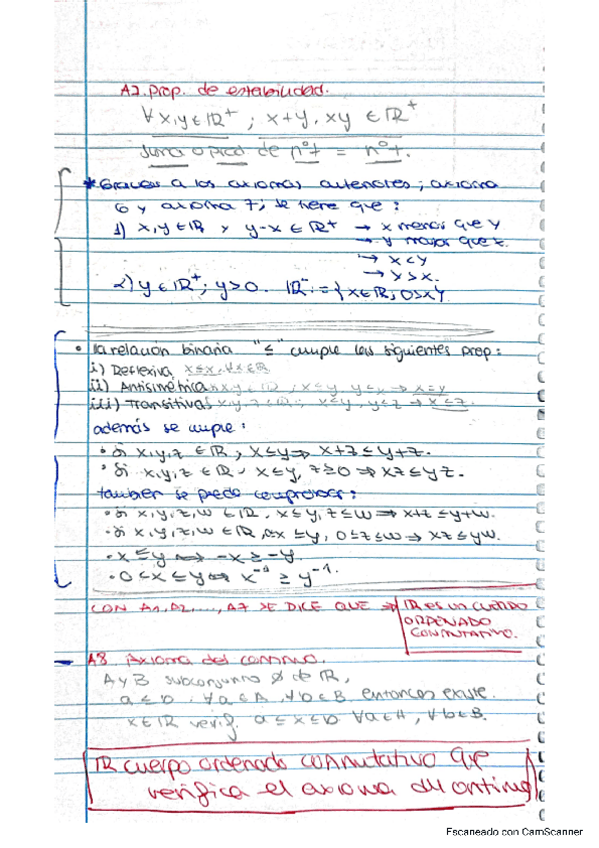 A7. Prop. de estabilidad.
∀ x,y ∈ IR⁺ ; x+y, xy ∈ IR⁺
Suma o prod de nº+ = nº+.
* Gracias a los axiomas anteriores; axioma
6 y axioma 7; se tiene que:
1) x,y ∈ IR y y-x ∈ IR⁺ → x menor que y
→ y mayor que x.
→ x<y
→ y>x.
2) y ∈ IR⁺; y>0. IR⁻ := {x ∈ IR; 0>x}
• la relación binaria "≤" cumple las siguientes prop:
i) Reflexiva, x≤x, ∀x∈IR
ii) Antisimétrica x,y ∈ IR, x≤y y≤x → x=y
iii) Transitivas x,y,z ∈ IR; x≤y, y≤z → x≤z.
además se cumple:
• Si x,y,z ∈ IR, x≤y ⇒ x+z ≤ y+z.
• Si x,y,z ∈ IR, x≤y, z≥0 ⇒ xz ≤ yz.
también se puede comprobar:
• Si x,y,z,w ∈ IR, x≤y, z≤w ⇒ x+z ≤ y+w.
• Si x,y,z,w ∈ IR, 0≤x≤y, 0≤z≤w ⇒ xz ≤ yw.
• x≤y ⟺ -x ≥ -y.
• 0<x≤y ⟺ x⁻¹ ≥ y⁻¹.
CON A1, A2, ..., A7 SE DICE QUE ⇒ IR ES UN CUERPO
ORDENADO
CONMUTATIVO.
- A8. Axioma del continuo.
A y B subconjunto ∅ de IR,
a≤b, ∀a∈A, ∀b∈B entonces existe
x∈IR verif. a≤x≤b ∀a∈A, ∀b∈B.
IR cuerpo ordenado conmutativo que
verifica el axioma del continuo
Escaneado con CamScanner